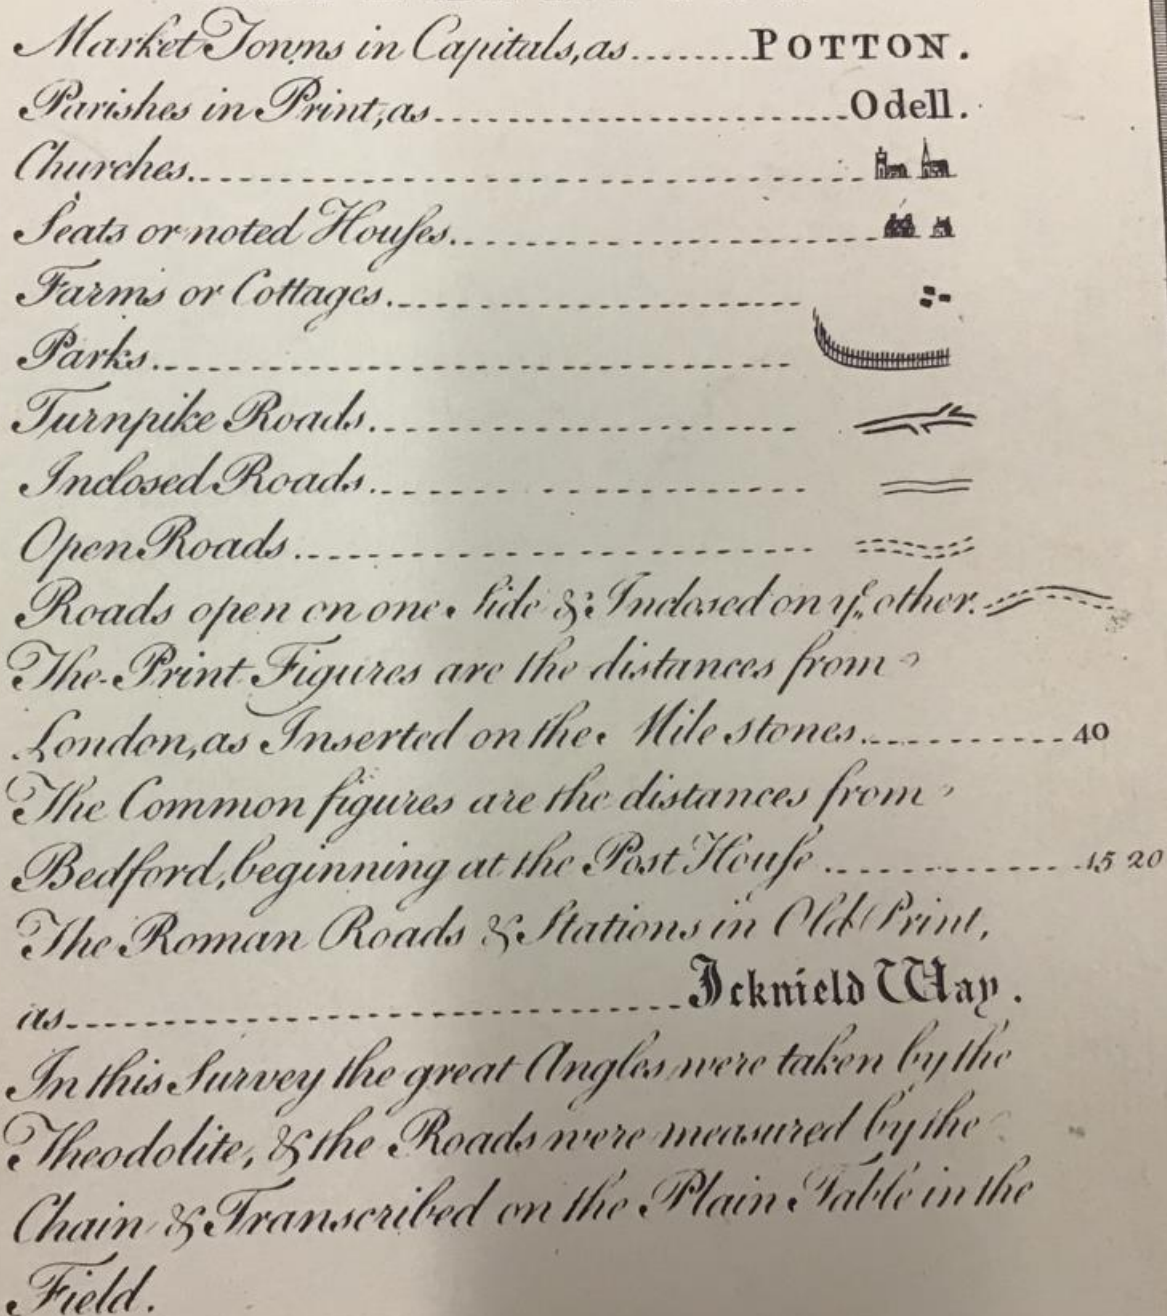 Market Towns in Capitals, as........POTTON.
Parishes in Print, as........Odell.
Churches........
Seats or noted Houſes........
Farms or Cottages........
Parks........
Turnpike Roads........
Inclosed Roads........
Open Roads........
Roads open on one Side & Inclosed on yᵉ other.
The Print Figures are the distances from
London, as Inserted on the Mile stones........40
The Common figures are the distances from
Bedford, beginning at the Post Houſe........15 20
The Roman Roads & Stations in Old Print,
as........Icknield Way.
In this Survey the great Angles were taken by the
Theodolite, & the Roads were measured by the
Chain & Transcribed on the Plain Table in the
Field.